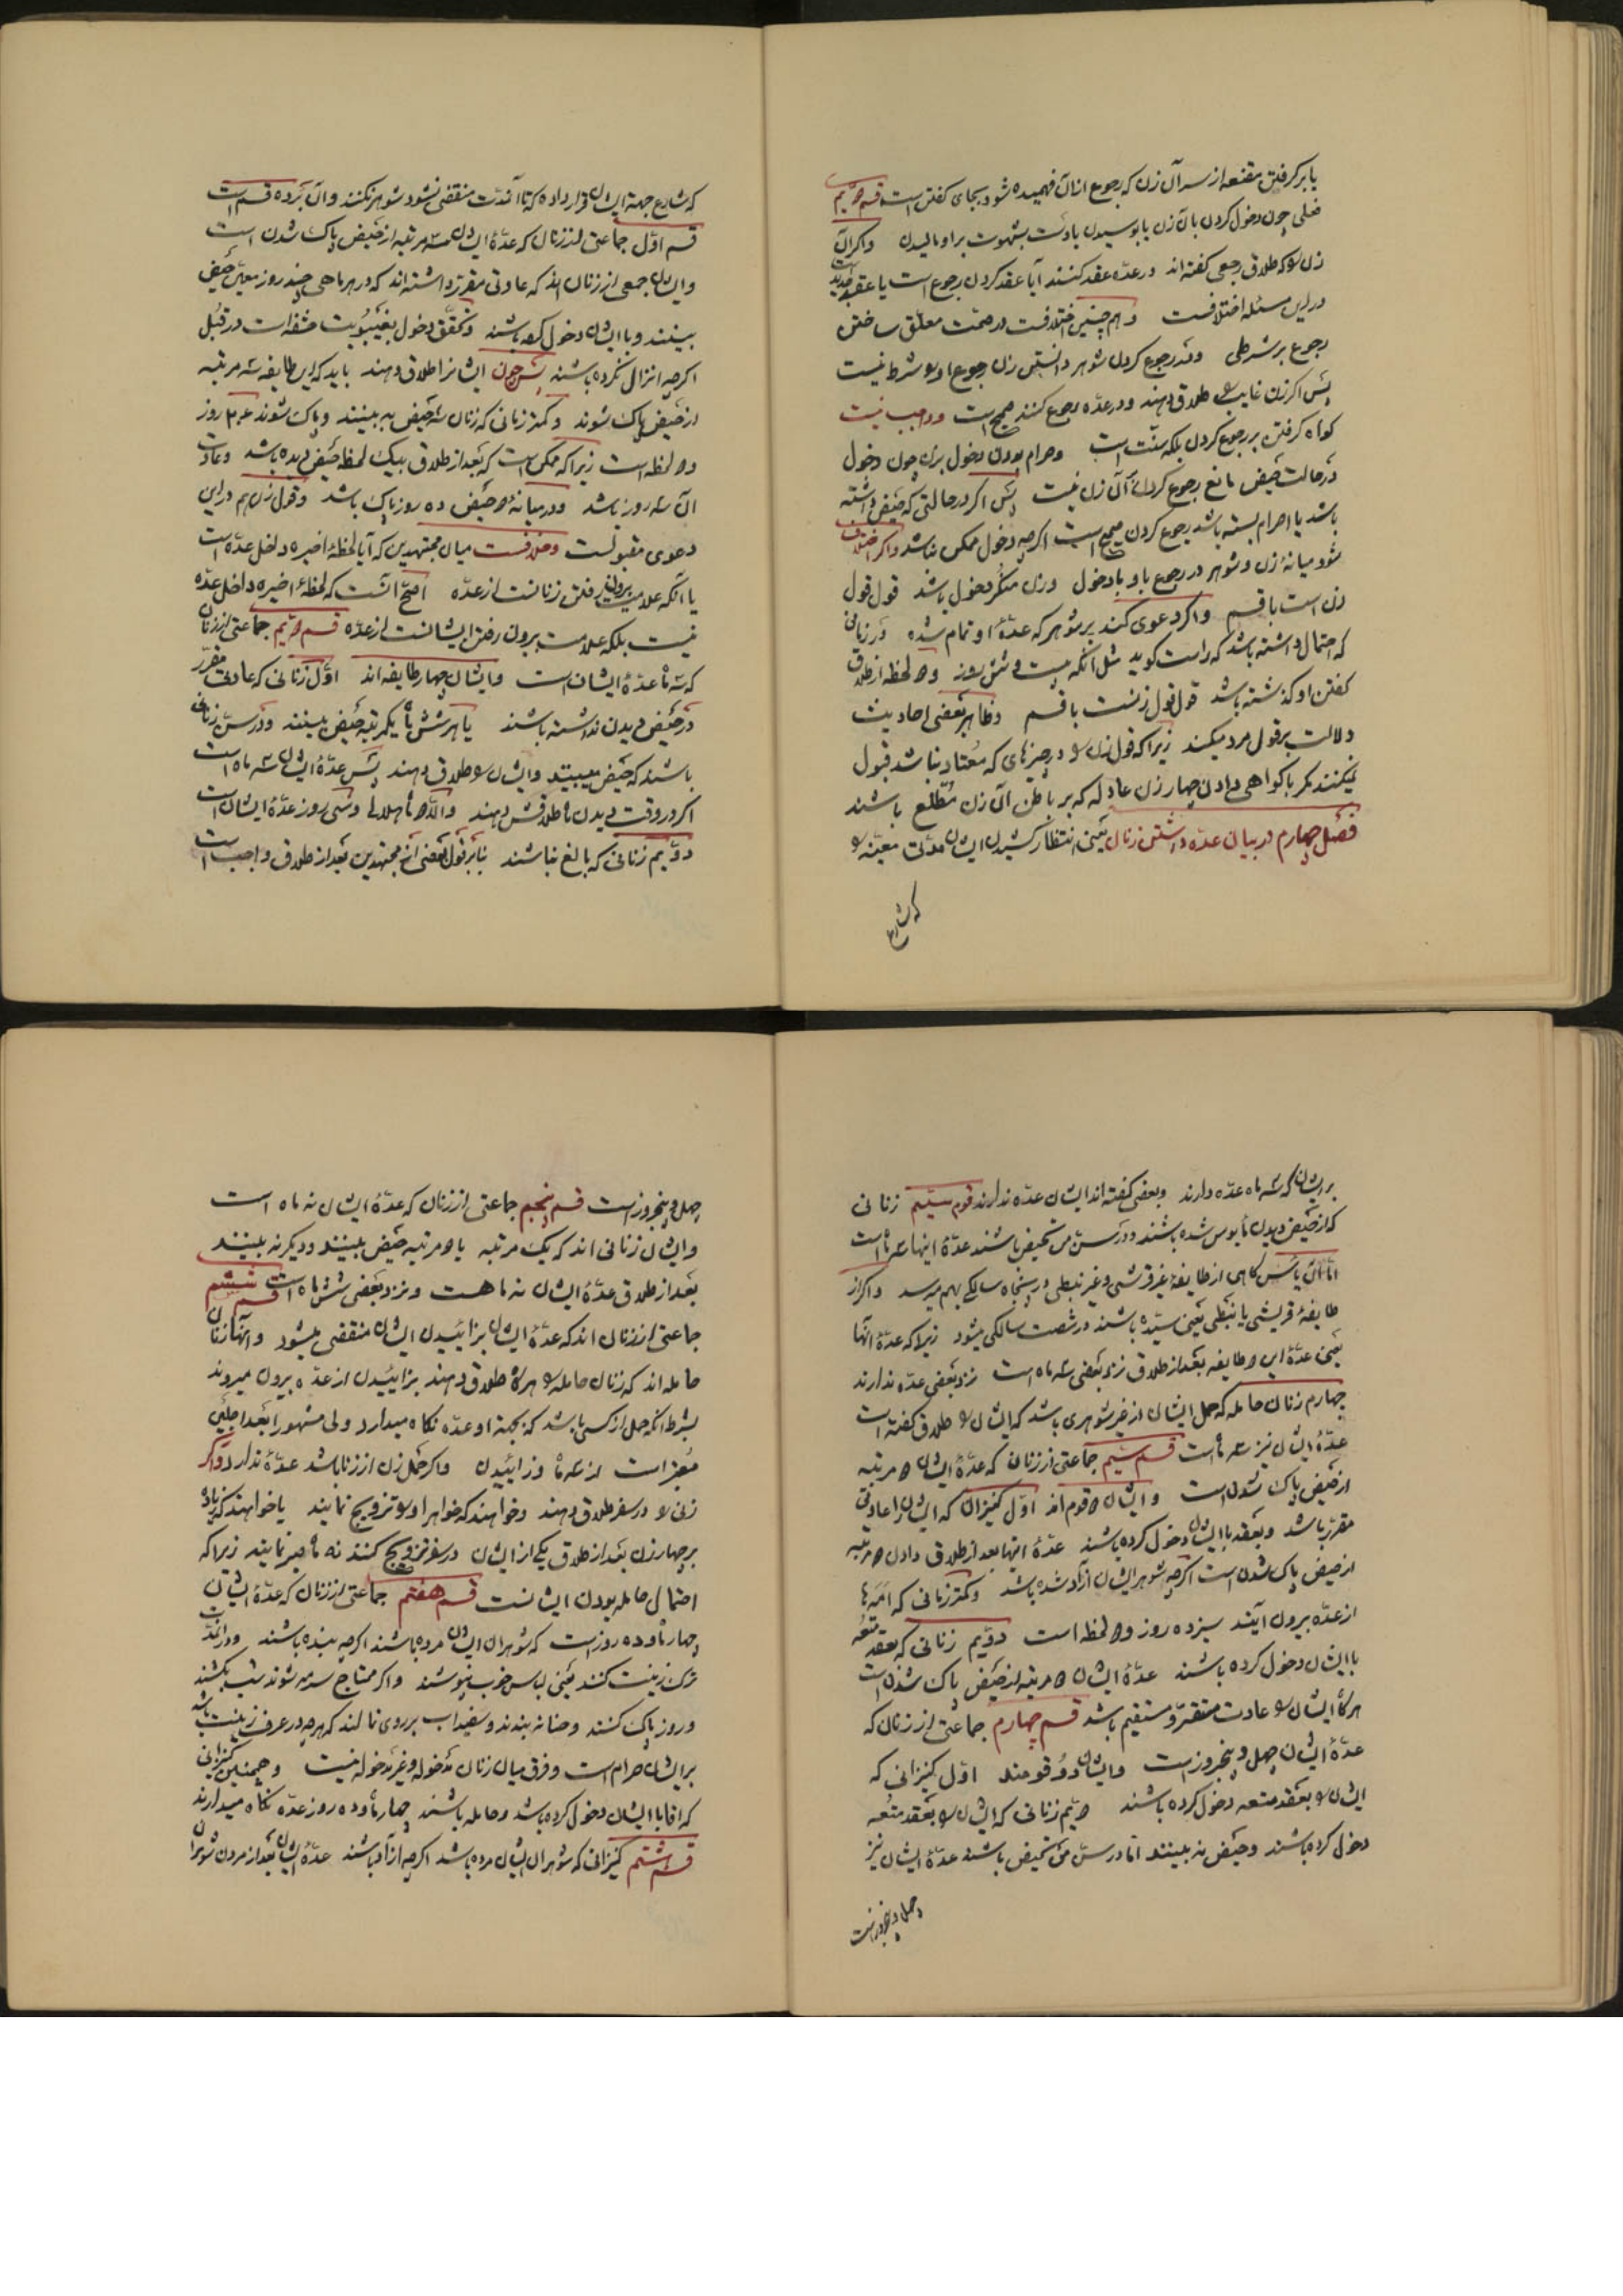 یا برکرفتن مقنعه از سر آن زن که رجوع ازان فهمیده شود بجای کفتن است قسم دویم
فعلی چون دخول کردن بآن زن یا بوسیدن یا دست بشهوت براو مالیدن واکر آن
زن را که طلاق رجعی کفته اند در عده عقد کنند آیا عقد کردن رجوع است یا عقد جدید است
درین مسئله اختلافست وهم چنین اختلافست در صحت معلق ساختن
رجوع بر شرطی ودر رجوع کردن شوهر دانستن زن رجوع او را شرط نیست
پس اکر زن غایب را طلاق دهند ودر عده رجوع کنند صحیح است وواجب نیست
کواه کرفتن بر رجوع کردن بلکه سنت است وحرام بودن دخول بزن چون دخول
در حالت حیض مانع رجوع کردن آن زن نیست پس اکر در حالتی که حیض داشته
باشد یا احرام بسته باشد رجوع کردن صحیح است اکرچه دخول ممکن نباشد واکر اختلاف
شود میانهٔ زن وشوهر در رجوع باو بادخول وزن منکر دخول باشد قول قول
زن است باقسم واکر دعوی کند بر شوهر که عدهٔ او تمام شده در زمانی
که احتمال داشته باشد که راست کوید مثل آنکه بیست وشش روز ودو لحظه از طلاق
کفتن او کذشته باشد قول قول زنست باقسم وظاهر بعضی احادیث
دلالت بر قول مرد میکند زیرا که قول زن را در چیزهای که معتاد نباشد قبول
نمیکنند مکر باکواهی دادن چهار زن عادله که بر باطن آن زن مطلع باشند
فصل چهارم در بیان عده داشتن زنان یعنی انتظار کشیدن ایشان مدتی معین را
که شارع
که شارع جهة ایشان قرار داده که تا آنمدت منقضی نشود شوهر نکنند وآن بر ده قسم است
قسم اول جماعتی از زنان که عدهٔ ایشان سه مرتبه از حیض پاک شدن است
وایشان جمعی از زنان اند که عادتی مقرر داشته اند که در هر ماهی چند روز معین حیض
بینند وباایشان دخول کرده باشند وتحقق دخول بغیبوبیت حشفه است در قبل
اکرچه انزال نکرده باشند پس چون ایشانرا طلاق دهند باید که این طایفه سه مرتبه
از حیض پاک شوند وکمتر زمانی که زنان سه حیض به بینند وپاک شوند روز
ودو لحظه است زیرا که ممکن است که بعد از طلاق بیک لحظه حیض دیده باشد وعادت
آن سه روز باشد ودر میانهٔ دو حیض ده روز پاک باشد وقول زن هم دراین
دعوی مقبولست وخلافست میان مجتهدین که آیا لحظهٔ اخیره داخل عده است
یا آنکه علامت بیرون رفتن زنانست از عده اصح آنست که لحظهٔ اخیره داخل عده
نیست بلکه علامت بیرون رفتن ایشانست از عده قسم دویم جماعتی از زنان
که سه ماه عدهٔ ایشان است وایشان چهار طایفه اند اول زنانی که عادت مقرر
در حیض دیدن نداشته باشند یا هر شش ماه یکمرتبه حیض بینند ودر سن زنانی
باشند که حیض میبینند وایشان را طلاق دهند پس عدهٔ ایشان سه ماه است
اکر در وقت دیدن ماه طلاقش دهند والا دو ماه هلالی وسی روز عدهٔ ایشان است
دویم زنانی که بالغ نباشند بنابر قول بعضی از مجتهدین بعد از طلاق واجب است
بر ایشان که سه ماه عده دارند وبعضی کفته اند ایشان عده ندارند قوم سیم زنانی
که از حیض دیدن مأیوس شده باشند ودر سن من تحیض باشند عدهٔ اینها سه ماه است
اما آن یأس کاهی از طایفهٔ غیر قرشی وغیر نبطی در پنجاه سالکی بهم میرسد واکر از
طایفهٔ قریشی یا نبطی یعنی سیده باشند در شصت سالکی میشود زیرا که عدهٔ آنها
یعنی عدهٔ این دو طایفه بعد از طلاق نزد بعضی سه ماه است نزد بعضی عده ندارند
چهارم زنان حامله که حمل ایشان از غیر شوهری باشد که ایشان را طلاق کفته است
عدهٔ ایشان نیز سه ماه است قسم سیم جماعتی از زنان که عدهٔ ایشان دو مرتبه
از حیض پاک شدن است وایشان دو قوم اند اول کنیزان که ایشان را عادتی
مقرر باشد وبعقد باایشان دخول کرده باشند عدهٔ اینها بعد از طلاق دادن دو مرتبه
از حیض پاک شدن است اکرچه شوهر ایشان آزاد شده باشد وکمتر زمانی که امه‌ها
از عده بیرون آیند سیزده روز ودو لحظه است دویم زنانی که بعقد متعه
باایشان دخول کرده باشند عدهٔ ایشان دو مرتبه از حیض پاک شدن است
هرکاه ایشان را عادت مستقر ومستقیم باشد قسم چهارم جماعتی از زنان که
عدهٔ ایشان چهل وپنجروز است وایشان دو قومند اول کنیزانی که
ایشان را بعقد متعه دخول کرده باشند دویم زنانی که ایشان را بعقد متعه
دخول کرده باشند وحیض نه بینند اما در سن من تحیض باشند عدهٔ ایشان نیز
چهل وپنجروز است
چهل وپنجروز است قسم پنجم جماعتی از زنان که عدهٔ ایشان نه ماه است
وایشان زنانی اند که یک مرتبه یا دو مرتبه حیض بینند ودیکر نه بینند
بعد از طلاق عدهٔ ایشان نه ماهست ونزد بعضی شش ماه است قسم ششم
جماعتی از زنان اند که عدهٔ ایشان بزائیدن ایشان منقضی میشود وآنها زنان
حامله اند که زنان حامله را هرکاه طلاق دهند بزائیدن از عده بیرون میروند
بشرط آنکه حمل از کسی باشد که بجهة او عده نکاه میدارد ولی مشهور ابعد اجلین
معتبر است از سه ماه وزائیدن واکر حمل زن از زنا باشد عدهٔ ندارد واکر
زنی را در سفر طلاق دهند وخواهند که خواهر او را تزویج نمایند یا خواهند که زیاده
بر چهار زن بعد از طلاق یکی از ایشان در سفر تزویج کنند نه ماه صبر نمایند زیرا که
احتمال حامله بودن ایشانست قسم هفتم جماعتی از زنان که عدهٔ ایشان
چهار ماه وده روز است که شوهران ایشان مرده باشند اکرچه بنده باشند ودر آنمدت
ترک زینت کنند یعنی لباس خوب نپوشند واکر محتاج سرمه شوند شب بکشند
وروز پاک کنند وحنا نه بندند وسفیداب بر روی نمالند که هرچه در عرف زینت باشد
بر ایشان حرام است وفرق میان زنان مدخوله وغیر مدخوله نیست وهمچنین کنیزانی
که آقا باایشان دخول کرده باشد وحامله باشند چهار ماه وده روز عده نکاه میدارند
قسم هشتم کنیزانی که شوهران ایشان مرده باشد اکرچه آزاد باشند عدهٔ ایشان بعد از مردن شوهران